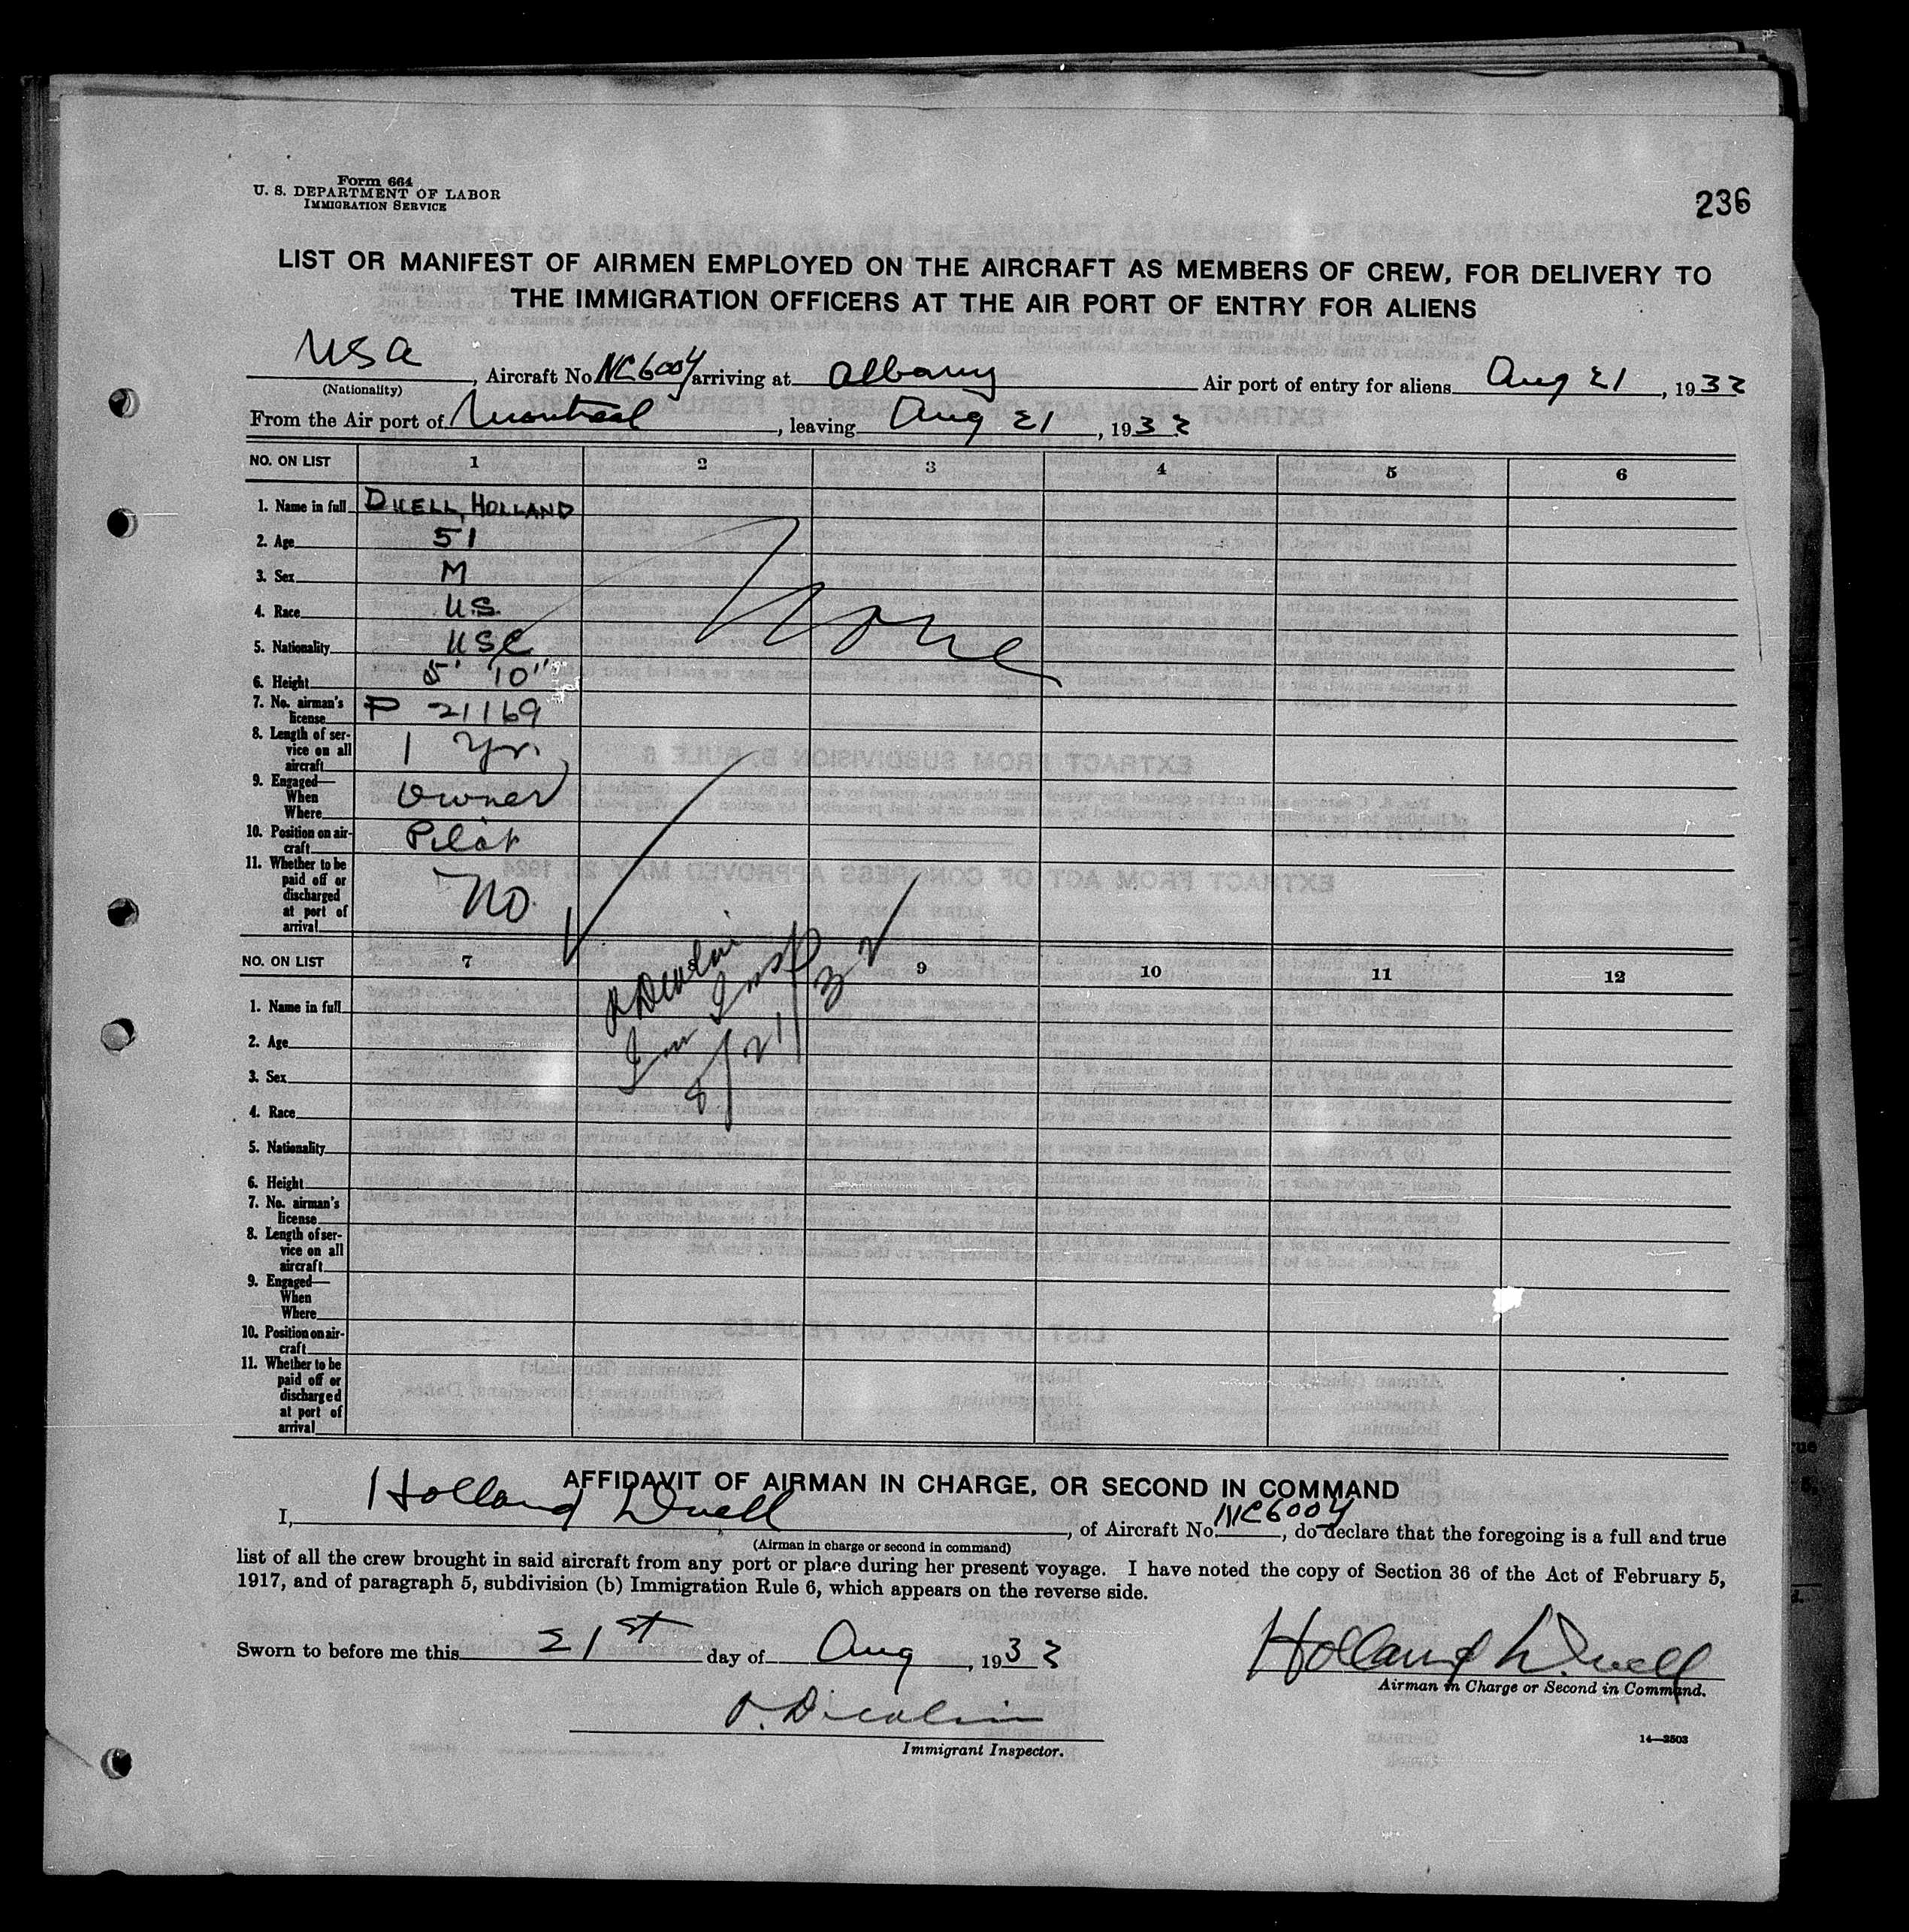 Form 664
U. S. DEPARTMENT OF LABOR
IMMIGRATION SERVICE
236
LIST OR MANIFEST OF AIRMEN EMPLOYED ON THE AIRCRAFT AS MEMBERS OF CREW, FOR DELIVERY TO
THE IMMIGRATION OFFICERS AT THE AIR PORT OF ENTRY FOR ALIENS
USA, Aircraft No. NC6004 arriving at Albany Air port of entry for aliens Aug 21, 1932
(Nationality)
From the Air port of Montreal, leaving Aug 21, 1932
NO. ON LIST 1 2 3 4 5 6
1. Name in full DUELL, HOLLAND
2. Age 51
3. Sex M
4. Race U.S.
5. Nationality USC
None
6. Height 5' 10"
7. No. airman's
license P 21169
8. Length of ser-
vice on all
aircraft 1 Yr.
9. Engaged—
When
Where Owner
10. Position on air-
craft Pilot
11. Whether to be
paid off or
discharged
at port of
arrival No.
Im Insp
8/21/32
NO. ON LIST 7 9 10 11 12
1. Name in full
2. Age
3. Sex
4. Race
5. Nationality
6. Height
7. No. airman's
license
8. Length of ser-
vice on all
aircraft
9. Engaged—
When
Where
10. Position on air-
craft
11. Whether to be
paid off or
discharged
at port of
arrival
AFFIDAVIT OF AIRMAN IN CHARGE, OR SECOND IN COMMAND
I, Holland Duell, of Aircraft No. NC6004, do declare that the foregoing is a full and true
(Airman in charge or second in command)
list of all the crew brought in said aircraft from any port or place during her present voyage. I have noted the copy of Section 36 of the Act of February 5,
1917, and of paragraph 5, subdivision (b) Immigration Rule 6, which appears on the reverse side.
Sworn to before me this 21st day of Aug, 1932
Holland Duell
Airman in Charge or Second in Command.
Immigrant Inspector.
14—2503